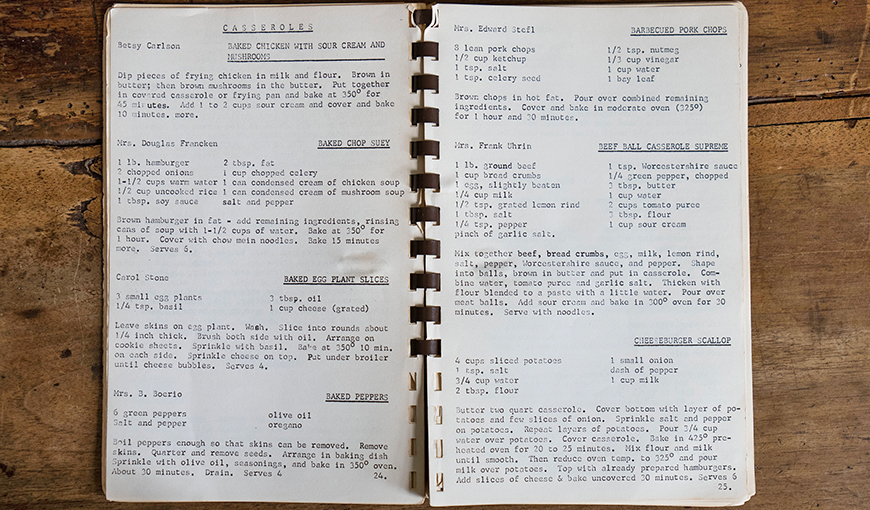 CASSEROLES
Betsy Carlson BAKED CHICKEN WITH SOUR CREAM AND
MUSHROOMS
Dip pieces of frying chicken in milk and flour. Brown in
butter; then brown mushrooms in the butter. Put together
in covered casserole or frying pan and bake at 350° for
45 minutes. Add 1 to 2 cups sour cream and cover and bake
10 minutes. more.
Mrs. Douglas Francken BAKED CHOP SUEY
1 lb. hamburger 2 tbsp. fat
2 chopped onions 1 cup chopped celery
1-1/2 cups warm water 1 can condensed cream of chicken soup
1/2 cup uncooked rice 1 can condensed cream of mushroom soup
1 tbsp. soy sauce salt and pepper
Brown hamburger in fat - add remaining ingredients, rinsing
cans of soup with 1-1/2 cups of water. Bake at 350° for
1 hour. Cover with chow mein noodles. Bake 15 minutes
more. Serves 6.
Carol Stone BAKED EGG PLANT SLICES
3 small egg plants 3 tbsp. oil
1/4 tsp. basil 1 cup cheese (grated)
Leave skins on egg plant. Wash. Slice into rounds about
1/4 inch thick. Brush both side with oil. Arrange on
cookie sheets. Sprinkle with basil. Bake at 350° 10 min.
on each side. Sprinkle cheese on top. Put under broiler
until cheese bubbles. Serves 4.
Mrs. B. Boerio BAKED PEPPERS
6 green peppers olive oil
Salt and pepper oregano
Boil peppers enough so that skins can be removed. Remove
skins. Quarter and remove seeds. Arrange in baking dish
Sprinkle with olive oil, seasonings, and bake in 350° oven.
About 30 minutes. Drain. Serves 4
24.
Mrs. Edward Stefl BARBECUED PORK CHOPS
8 lean pork chops 1/2 tsp. nutmeg
1/2 cup ketchup 1/3 cup vinegar
1 tsp. salt 1 cup water
1 tsp. celery seed 1 bay leaf
Brown chops in hot fat. Pour over combined remaining
ingredients. Cover and bake in moderate oven (325°)
for 1 hour and 30 minutes.
Mrs. Frank Uhrin BEEF BALL CASSEROLE SUPREME
1 lb. ground beef 1 tsp. Worcestershire sauce
1 cup bread crumbs 1/4 green pepper, chopped
1 egg, slightly beaten 3 tbsp. butter
1/4 cup milk 1 cup water
1/2 tsp. grated lemon rind 2 cups tomato puree
1 tbsp. salt 3 tbsp. flour
1/4 tsp. pepper 1 cup sour cream
pinch of garlic salt.
Mix together beef, bread crumbs, egg, milk, lemon rind,
salt, pepper, Worcestershire sauce, and pepper. Shape
into balls, brown in butter and put in casserole. Com-
bine water, tomato puree and garlic salt. Thicken with
flour blended to a paste with a little water. Pour over
meat balls. Add sour cream and bake in 300° oven for 30
minutes. Serve with noodles.
CHEESEBURGER SCALLOP
4 cups sliced potatoes 1 small onion
1 tsp. salt dash of pepper
3/4 cup water 1 cup milk
2 tbsp. flour
Butter two quart casserole. Cover bottom with layer of po-
tatoes and few slices of onion. Sprinkle salt and pepper
on potatoes. Repeat layers of potatoes. Pour 3/4 cup
water over potatoes. Cover casserole. Bake in 425° pre-
heated oven for 20 to 25 minutes. Mix flour and milk
until smooth. Then reduce oven temp. to 325° and pour
milk over potatoes. Top with already prepared hamburgers.
Add slices of cheese & bake uncovered 30 minutes. Serves 6
25.